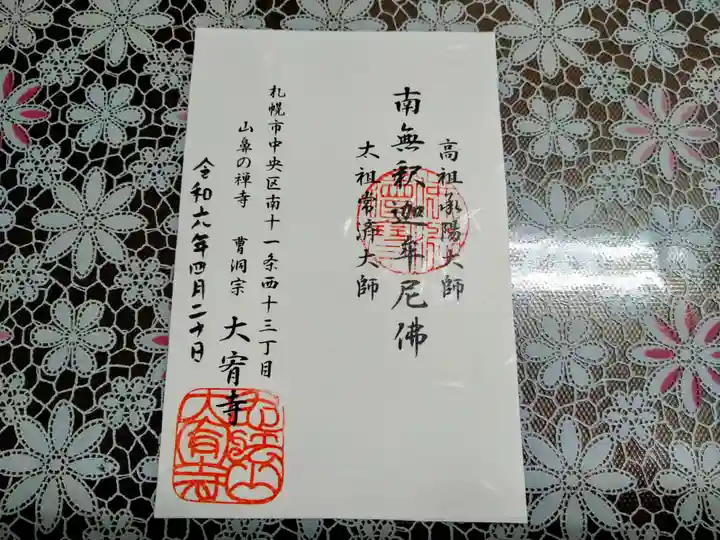 高祖承陽大師
南無釈迦牟尼佛
太祖常済大師
札幌市中央区南十一条西十三丁目
山鼻の禅寺 曹洞宗 大宥寺
令和六年四月二十日